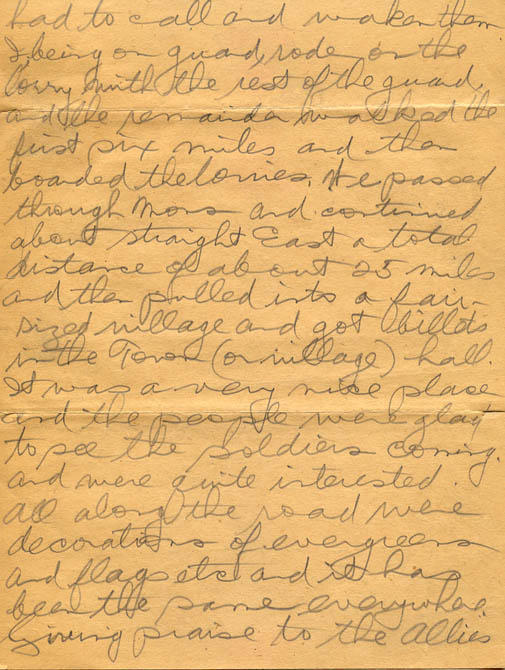 had to call and waken them.
I, being on guard, rode on the
lorry with the rest of the guard,
and the remainder walked the
first six miles and then
boarded the lorries. We passed
through Mons and continued
about straight East a total
distance of about 25 miles
and then pulled into a fair-
sized village and got billets
in the Town (or village) hall.
It was a very nice place
and the people were glad
to see the soldiers coming.
and were quite interested.
All along the road were
decorations of evergreens
and flags etc and it has
been the same everywhere.
Giving praise to the Allies